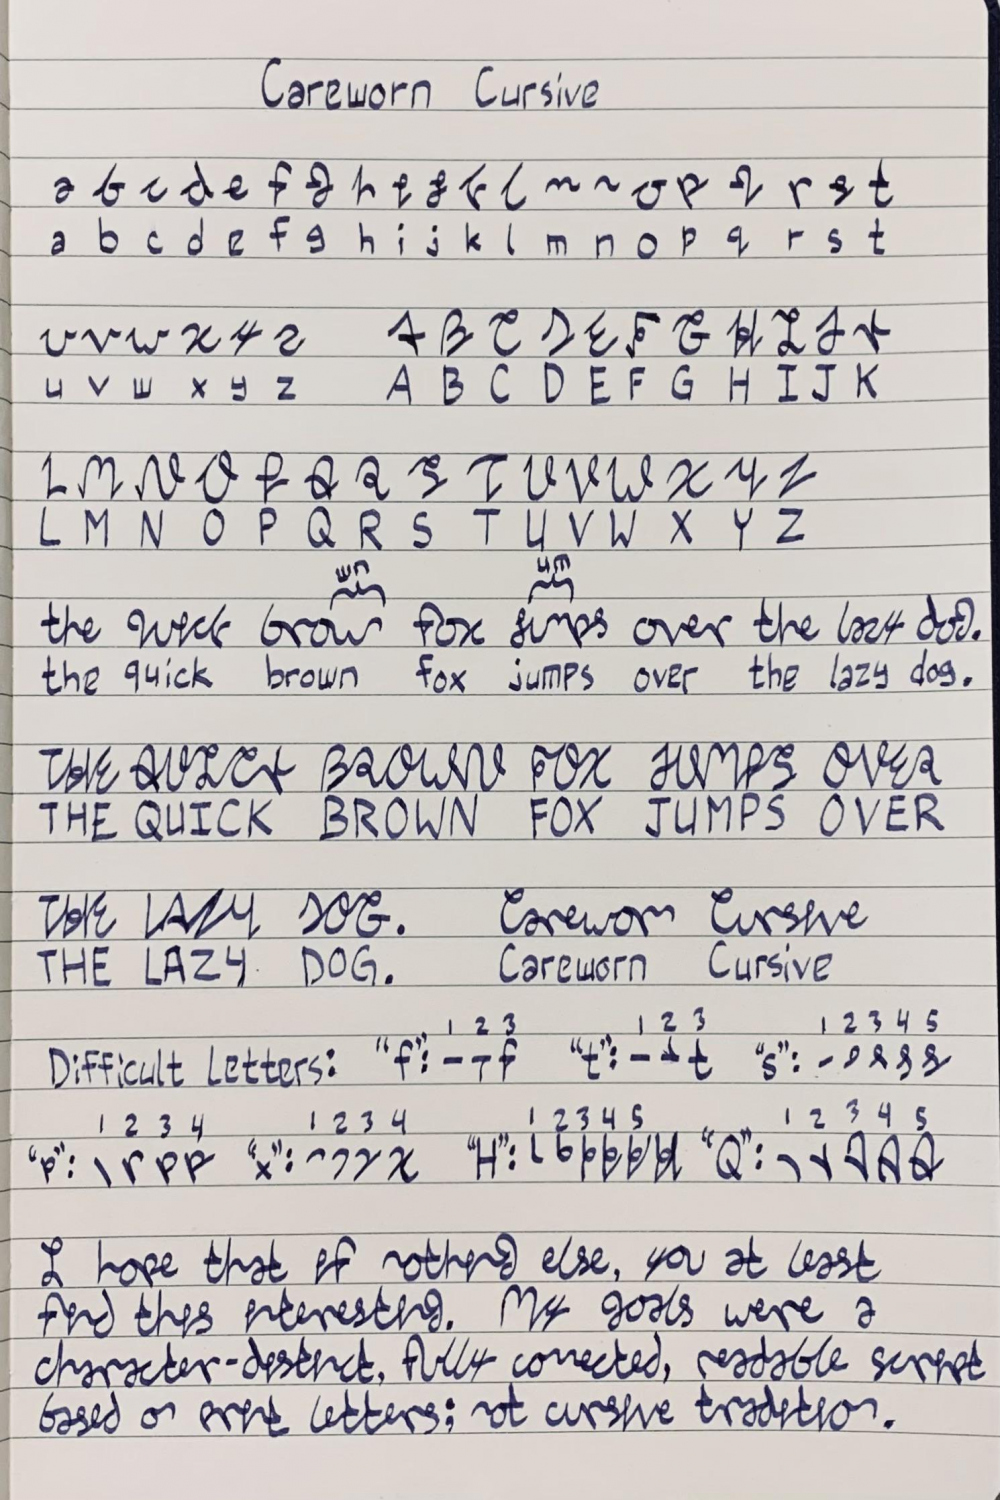 Careworn Cursive
a b c d e f g h i j k l m n o p q r s t
a b c d e f g h i j k l m n o p q r s t
u v w x y z A B C D E F G H I J K
u v w x y z A B C D E F G H I J K
L M N O P Q R S T U V W X Y Z
L M N O P Q R S T U V W X Y Z
wn um
the quick brown fox jumps over the lazy dog.
the quick brown fox jumps over the lazy dog.
THE QUICK BROWN FOX JUMPS OVER
THE QUICK BROWN FOX JUMPS OVER
THE LAZY DOG. Careworn Cursive
THE LAZY DOG. Careworn Cursive
1 2 3 1 2 3 1 2 3 4 5
Difficult Letters: "f": "t": "s":
1 2 3 4 1 2 3 4 1 2 3 4 5 1 2 3 4 5
"p": "x": "H": "Q":
I hope that if nothing else, you at least
find this interesting. My goals were a
character-distinct, fully connected, readable script
based on print letters; not cursive tradition.